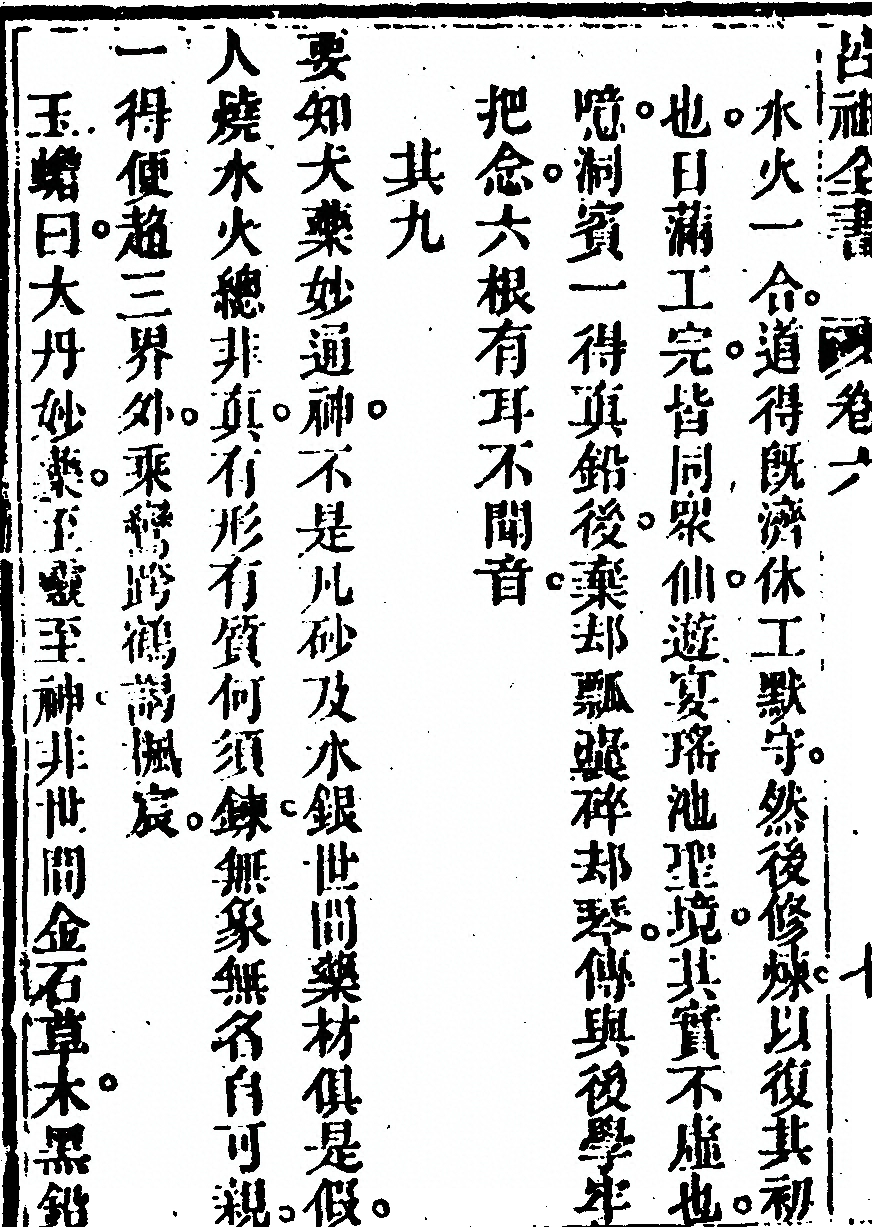 呂祖全書 卷六 十
水火一合。道得既濟休工默守。然後修煉。以復其初
也。日滿工完。皆同眾仙。遊宴瑤池聖境。其實不虛也。
噫。洞賓一得真鉛後。棄却瓢囊碎却琴。傳與後學牢
把念。六根有耳不聞音。
其九
要知大藥妙通神。不是凡砂及水銀。世間藥材俱是假。
人燒水火總非真。有形有質何須鍊。無象無名自可親。
一得便超三界外。乘鸞跨鶴謁楓宸。
玉蟾曰。大丹妙藥。至靈至神。非世間金石草木。黑鉛